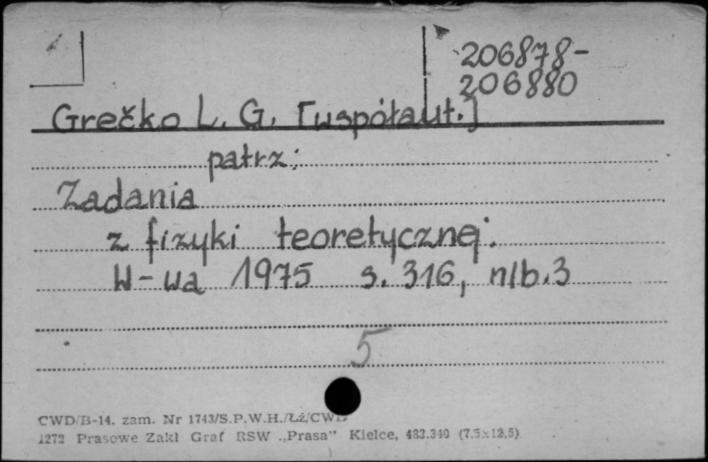 206878-
206880
Grečko L. G. [współaut.]
patrz:
Zadania
z fizyki teoretycznej.
W-wa 1975 s. 316, nlb. 3
5
CWD/B-14. zam. Nr 1743/S.P.W.H./Łź/CWD
1272 Prasowe Zakł Graf RSW „Prasa" Kielce, 483.340 (7,5x12,5)